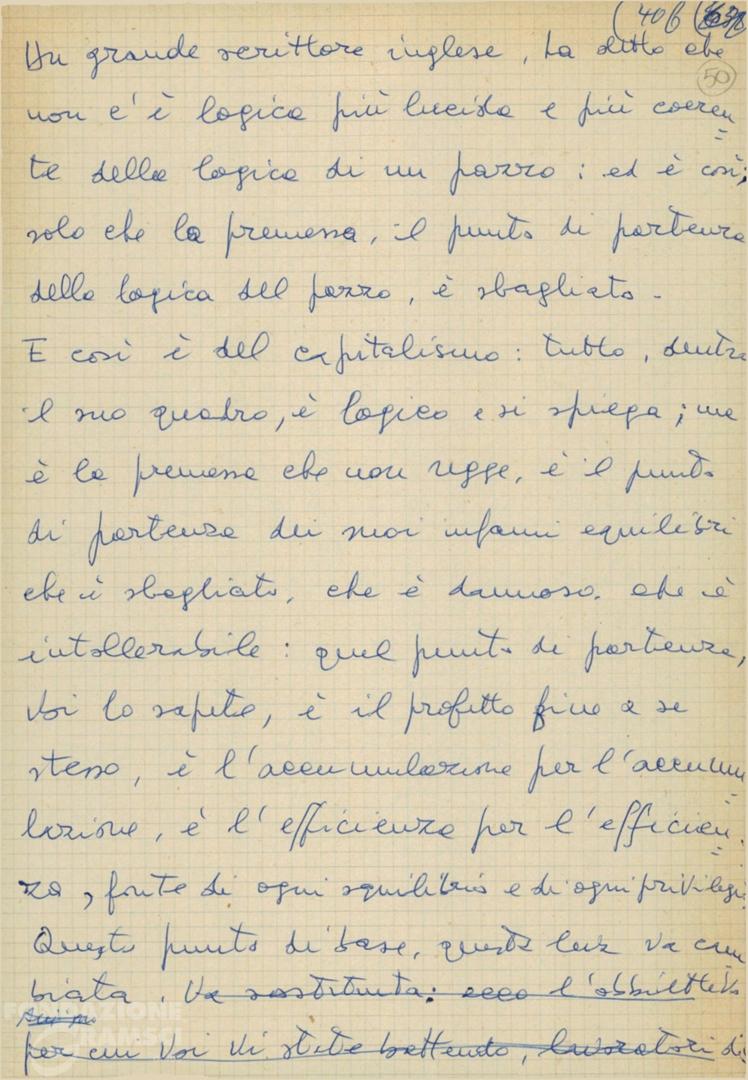 (40b
50
Un grande scrittore inglese, ha detto che
non c'è logica più lucida e più coeren=
te della logica di un pazzo: ed è così;
solo che la premessa, il punto di partenza
della logica del pazzo, è sbagliato -
E così è del capitalismo: tutto, dentro
il suo quadro, è logico e si spiega; ma
è la premessa che non regge, è il punto
di partenza dei suoi infami equilibri
che è sbagliato, che è dannoso, che è
intollerabile: quel punto di partenza,
Voi lo sapete, è il profitto fine a se
stesso, è l'accumulazione per l'accumu=
lazione, è l'efficienza per l'efficien=
za, fonte di ogni squilibrio e di ogni privilegio.
Questo punto di base, questa va cam
biata. Va sostituita: ecco l'obbiettivo
per cui Voi Vi state battendo, lavoratori di
FONDAZIONE
GRAMSCI